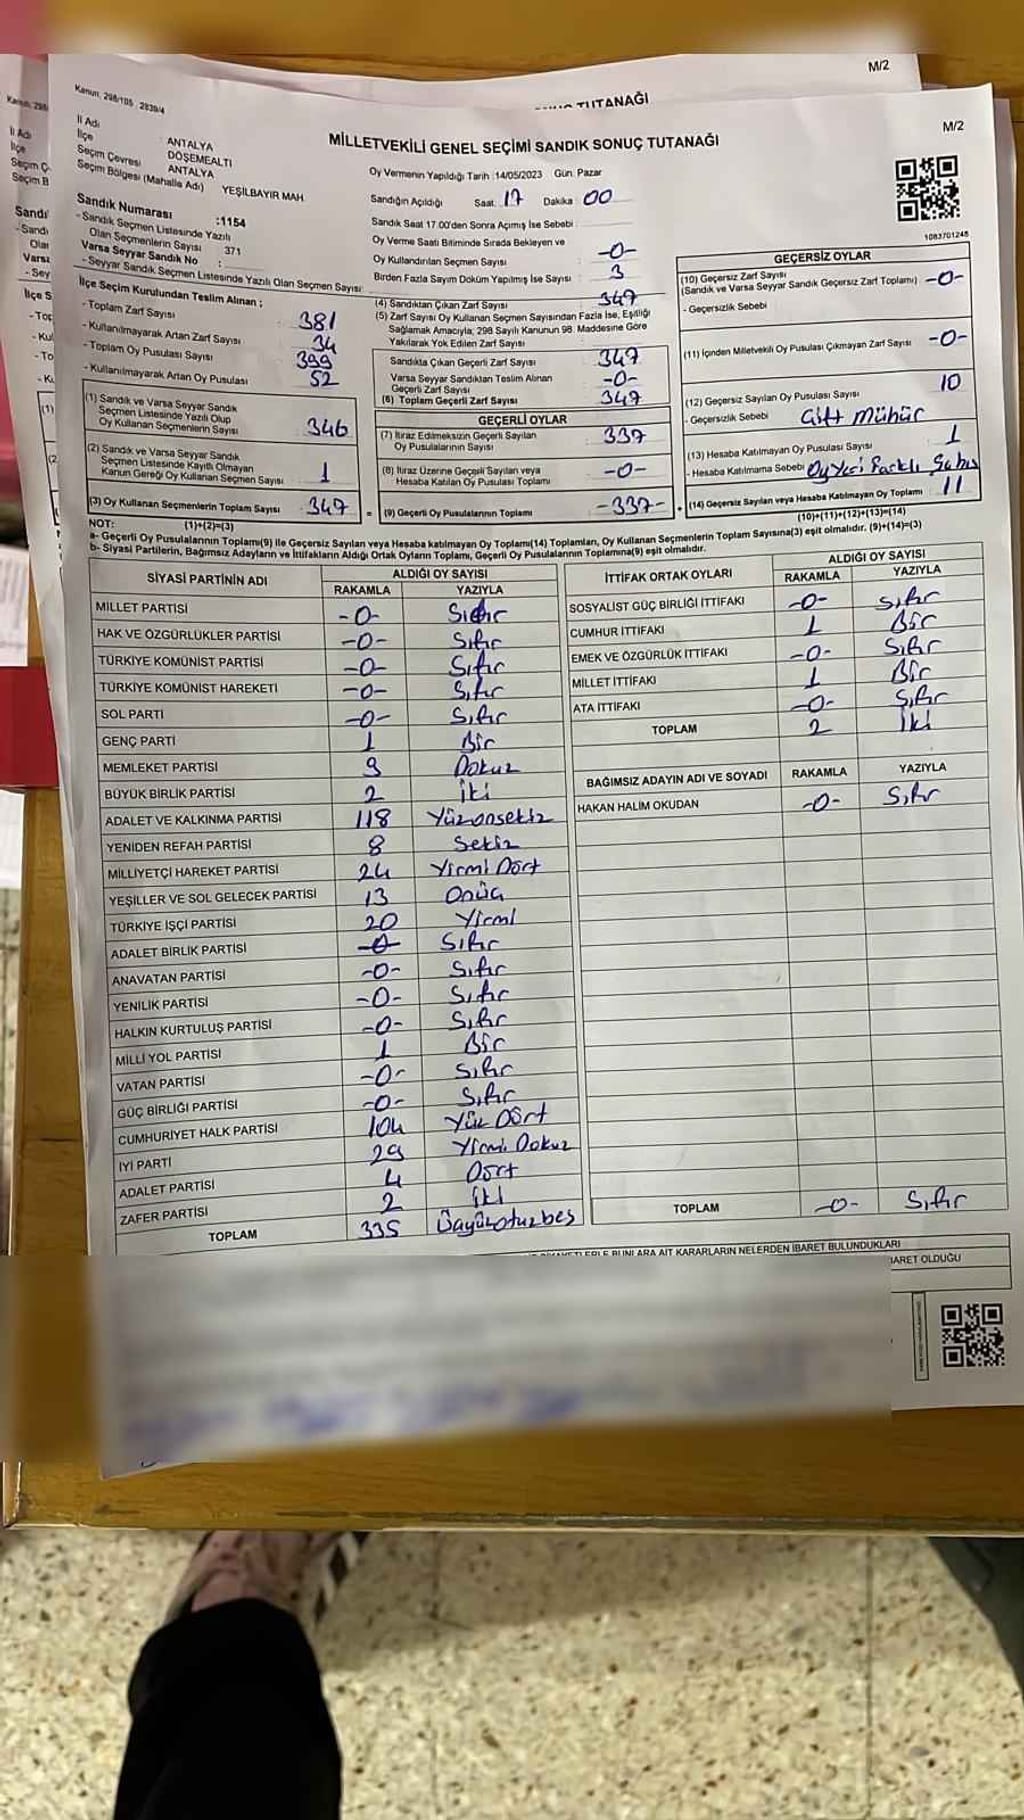 M/2
TUTANAĞI
Kanun: 298/105 , 2839/4
M/2
MİLLETVEKİLİ GENEL SEÇİMİ SANDIK SONUÇ TUTANAĞI
İl Adı : ANTALYA
İlçe : DÖŞEMEALTI
Seçim Çevresi ANTALYA
Seçim Bölgesi (Mahalle Adı) YEŞİLBAYIR MAH.
Oy Vermenin Yapıldığı Tarih :14/05/2023 Gün: Pazar
Sandığın Açıldığı Saat: 17 Dakika 00
Sandık Saat 17.00'den Sonra Açılmış İse Sebebi :
Oy Verme Saati Bitiminde Sırada Bekleyen ve
Oy Kullandırılan Seçmen Sayısı : -0-
Birden Fazla Sayım Döküm Yapılmış İse Sayısı : 3
1083701248
Sandık Numarası :1154
- Sandık Seçmen Listesinde Yazılı
Olan Seçmenlerin Sayısı 371
Varsa Seyyar Sandık No :
- Seyyar Sandık Seçmen Listesinde Yazılı Olan Seçmen Sayısı:
İlçe Seçim Kurulundan Teslim Alınan ;
- Toplam Zarf Sayısı : 381
- Kullanılmayarak Artan Zarf Sayısı : 34
- Toplam Oy Pusulası Sayısı : 399
- Kullanılmayarak Artan Oy Pusulası : 52
(1) Sandık ve Varsa Seyyar Sandık
Seçmen Listesinde Yazılı Olup
Oy Kullanan Seçmenlerin Sayısı 346
(2) Sandık ve Varsa Seyyar Sandık
Seçmen Listesinde Kayıtlı Olmayan
Kanun Gereği Oy Kullanan Seçmen Sayısı 1
(3) Oy Kullanan Seçmenlerin Toplam Sayısı 347
(4) Sandıktan Çıkan Zarf Sayısı : 347
(5) Zarf Sayısı Oy Kullanan Seçmen Sayısından Fazla İse, Eşitliği
Sağlamak Amacıyla; 298 Sayılı Kanunun 98. Maddesine Göre
Yakılarak Yok Edilen Zarf Sayısı :
Sandıkta Çıkan Geçerli Zarf Sayısı : 347
Varsa Seyyar Sandıktan Teslim Alınan
Geçerli Zarf Sayısı : -0-
(6) Toplam Geçerli Zarf Sayısı : 347
GEÇERLİ OYLAR
(7) İtiraz Edilmeksizin Geçerli Sayılan
Oy Pusulalarının Sayısı : 337
(8) İtiraz Üzerine Geçerli Sayılan veya
Hesaba Katılan Oy Pusulası Toplamı : -0-
= (9) Geçerli Oy Pusulalarının Toplamı -337-
GEÇERSİZ OYLAR
(10) Geçersiz Zarf Sayısı
(Sandık ve Varsa Seyyar Sandık Geçersiz Zarf Toplamı) -0-
- Geçersizlik Sebebi
(11) İçinden Milletvekili Oy Pusulası Çıkmayan Zarf Sayısı -0-
(12) Geçersiz Sayılan Oy Pusulası Sayısı 10
- Geçersizlik Sebebi Çift Mühür
(13) Hesaba Katılmayan Oy Pusulası Sayısı 1
- Hesaba Katılmama Sebebi Oy Yeri Farklı
+ (14) Geçersiz Sayılan veya Hesaba Katılmayan Oy Toplamı 11
NOT: (1)+(2)=(3) (10)+(11)+(12)+(13)=(14)
a- Geçerli Oy Pusulalarının Toplamı(9) ile Geçersiz Sayılan veya Hesaba katılmayan Oy Toplamı(14) Toplamları, Oy Kullanan Seçmenlerin Toplam Sayısına(3) eşit olmalıdır. (9)+(14)=(3)
b- Siyasi Partilerin, Bağımsız Adayların ve İttifakların Aldığı Ortak Oyların Toplamı, Geçerli Oy Pusulalarının Toplamına(9) eşit olmalıdır.
SİYASİ PARTİNİN ADI ALDIĞI OY SAYISI
RAKAMLA YAZIYLA
MİLLET PARTİSİ -0- Sıfır
HAK VE ÖZGÜRLÜKLER PARTİSİ -0- Sıfır
TÜRKİYE KOMÜNİST PARTİSİ -0- Sıfır
TÜRKİYE KOMÜNİST HAREKETİ -0- Sıfır
SOL PARTİ -0- Sıfır
GENÇ PARTİ 1 Bir
MEMLEKET PARTİSİ 9 Dokuz
BÜYÜK BİRLİK PARTİSİ 2 İki
ADALET VE KALKINMA PARTİSİ 118 Yüzonsekiz
YENİDEN REFAH PARTİSİ 8 Sekiz
MİLLİYETÇİ HAREKET PARTİSİ 24 Yirmi Dört
YEŞİLLER VE SOL GELECEK PARTİSİ 13 Onüç
TÜRKİYE İŞÇİ PARTİSİ 20 Yirmi
ADALET BİRLİK PARTİSİ -0- Sıfır
ANAVATAN PARTİSİ -0- Sıfır
YENİLİK PARTİSİ -0- Sıfır
HALKIN KURTULUŞ PARTİSİ -0- Sıfır
MİLLİ YOL PARTİSİ 1 Bir
VATAN PARTİSİ -0- Sıfır
GÜÇ BİRLİĞİ PARTİSİ -0- Sıfır
CUMHURİYET HALK PARTİSİ 104 Yüz Dört
İYİ PARTİ 29 Yirmi Dokuz
ADALET PARTİSİ 4 Dört
ZAFER PARTİSİ 2 İki
TOPLAM 335 Üçyüzotuzbeş
İTTİFAK ORTAK OYLARI ALDIĞI OY SAYISI
RAKAMLA YAZIYLA
SOSYALİST GÜÇ BİRLİĞİ İTTİFAKI -0- Sıfır
CUMHUR İTTİFAKI 1 Bir
EMEK VE ÖZGÜRLÜK İTTİFAKI -0- Sıfır
MİLLET İTTİFAKI 1 Bir
ATA İTTİFAKI -0- Sıfır
TOPLAM 2 İki
BAĞIMSIZ ADAYIN ADI VE SOYADI RAKAMLA YAZIYLA
HAKAN HALİM OKUDAN -0- Sıfır
TOPLAM -0- Sıfır
BUNLARA AİT KARARLARIN NELERDEN İBARET BULUNDUKLARI
OLDUĞU